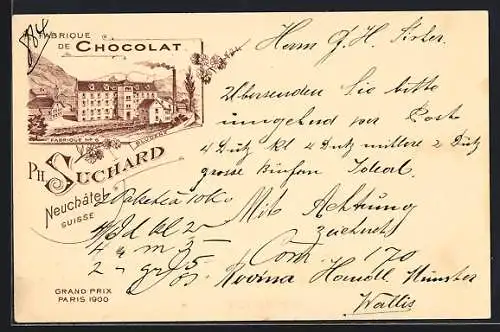 FABRIQUE
DE CHOCOLAT
FABRIQUE No
PH. SUCHARD
Neuchâtel
SUISSE
GRAND PRIX
PARIS 1900
Herrn G. H.
Übersenden Sie bitte
umgehend per Post
4 Dutz kl 4 Dutz mittlere 2 Dutz
grosse Ideal.
Mit Achtung
zeichnet
2 Pakete à 10 Ko
4 Dd kl 2
4 " m 3
2 " gr 5
Com. 170
Handl. Münster
Wallis